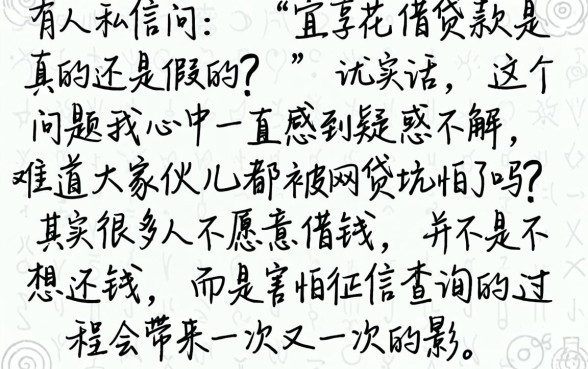 有人私信问：“宜享花借贷款是
真的还是假的？”说实话，这个
问题我心中一直感到疑惑不解，
难道大家伙儿都被网贷坑怕了吗？
其实很多人不愿意借钱，并不是不
想还钱，而是害怕征信查询的过
程会带来一次又一次的影。